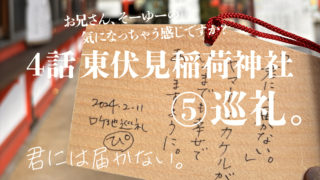 お兄さん、そーゆーの
気になっちゃう感じですか?
4話 東伏見稲荷神社
⑤巡礼。
君には届かない。
2024.2.11
ロケ地巡礼
ぴ
届かない。」
カケルが
幸せで
ように。